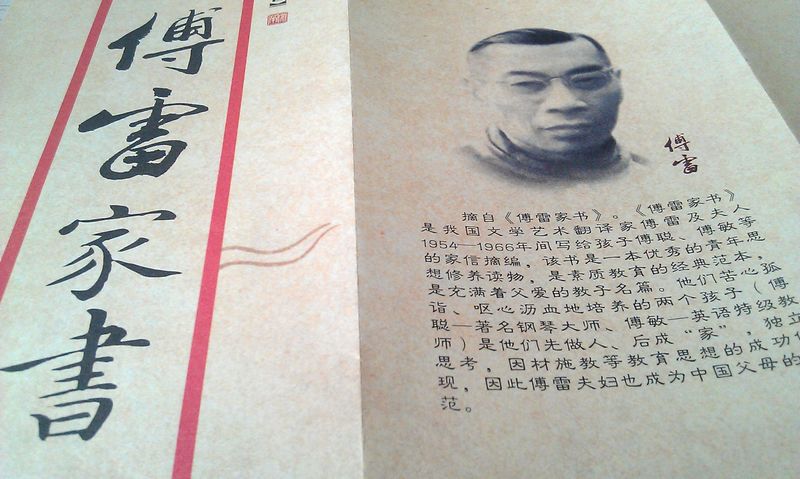 傅雷家書
傅雷
摘自《傅雷家书》。《傅雷家书》
是我国文学艺术翻译家傅雷及夫人
1954—1966年间写给孩子傅聪、傅敏等
的家信摘编，该书是一本优秀的青年思
想修养读物，是素质教育的经典范本，
是充满着父爱的教子名篇。他们苦心孤
诣、呕心沥血地培养的两个孩子（傅
聪—著名钢琴大师、傅敏—英语特级教
师）是他们先做人、后成“家”，独立
思考，因材施教等教育思想的成功
现，因此傅雷夫妇也成为中国父母的
范。